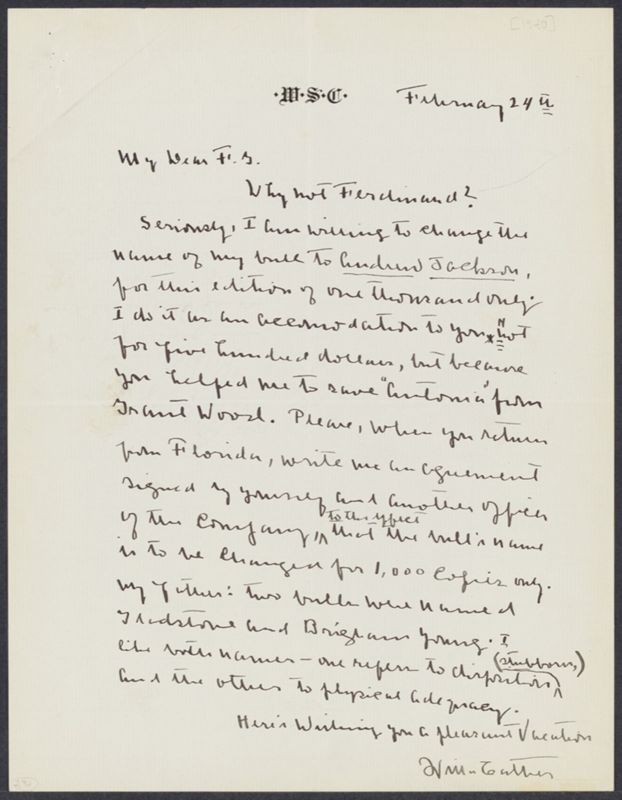 [1940]
·W·S·C·
February 24th
My Dear F. G.
Why not Ferdinand?
Seriously, I am willing to change the
name of my bull to Andrew Jackson,
for this edition of one thousand only.
I do it as an accomodation to you, Not
for five hundred dollars, but because
you helped me to save "Antonia" from
Grant Wood. Please, when you return
from Florida, write me an agreement
signed by yourself and another officer
of the Company, to the effect that the bull's name
is to be changed for 1,000 Copies only.
My father's two bulls were named
Gladstone and Brigham Young. I
like both names — one refers to disposition, (stubborn,)
and the other to physical adequacy.
Here's wishing you a pleasant Vacation
Willa Cather